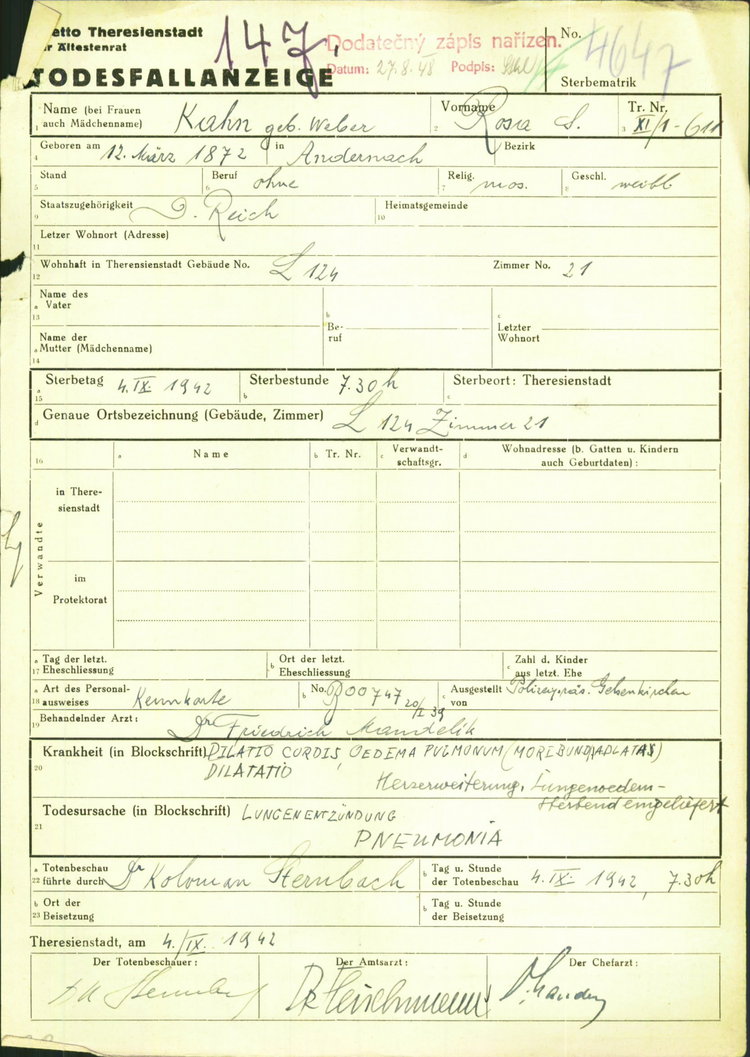 etto Theresienstadt
r Ältestenrat
147
Dodatečný zápis nařízen.
Datum: 27.8.48 Podpis:
No. 4647
Sterbematrik
TODESFALLANZEIGE
1 Name (bei Frauen auch Mädchenname) Kahn geb. Weber 2 Vorname Rosa S. 3 Tr. Nr. XI/1-611
4 Geboren am 12. März 1872 in Andernach Bezirk
5 Stand 6 Beruf ohne 7 Relig. mos. 8 Geschl. weibl
9 Staatszugehörigkeit D. Reich 10 Heimatsgemeinde
11 Letzer Wohnort (Adresse)
12 Wohnhaft in Theresienstadt Gebäude No. L 124 Zimmer No. 21
13 a Name des Vater b Beruf c Letzter Wohnort
14 a Name der Mutter (Mädchenname)
15 a Sterbetag 4. IX. 1942 b Sterbestunde 7.30h c Sterbeort: Theresienstadt
d Genaue Ortsbezeichnung (Gebäude, Zimmer) L 124 Zimmer 21
16 a Name b Tr. Nr. c Verwandtschaftsgr. d Wohnadresse (b. Gatten u. Kindern auch Geburtdaten):
Verwandte
in Theresienstadt
im Protektorat
17 a Tag der letzt. Eheschliessung b Ort der letzt. Eheschliessung c Zahl d. Kinder aus letzt. Ehe
18 a Art des Personalausweises Kennkarte b No. 00747 20/I 39 c Ausgestellt von Polizeipräs. Gelsenkirchen
19 Behandelnder Arzt: Dr Friedrich Mandelík
20 Krankheit (in Blockschrift) DILATIO CORDIS, OEDEMA PULMONUM (MORIBUND ADLATAS)
DILATATIO
Herzerweiterung, Lungenoedem-
Sterbend eingeliefert
21 Todesursache (in Blockschrift) LUNGENENTZÜNDUNG
PNEUMONIA
22 a Totenbeschau führte durch Dr Koloman Sternbach b Tag u. Stunde der Totenbeschau 4. IX. 1942, 7.30h
23 b Ort der Beisetzung b Tag u. Stunde der Beisetzung
Theresienstadt, am 4./IX. 1942
Der Totenbeschauer: Der Amtsarzt: Der Chefarzt:
Dr Fleischmann